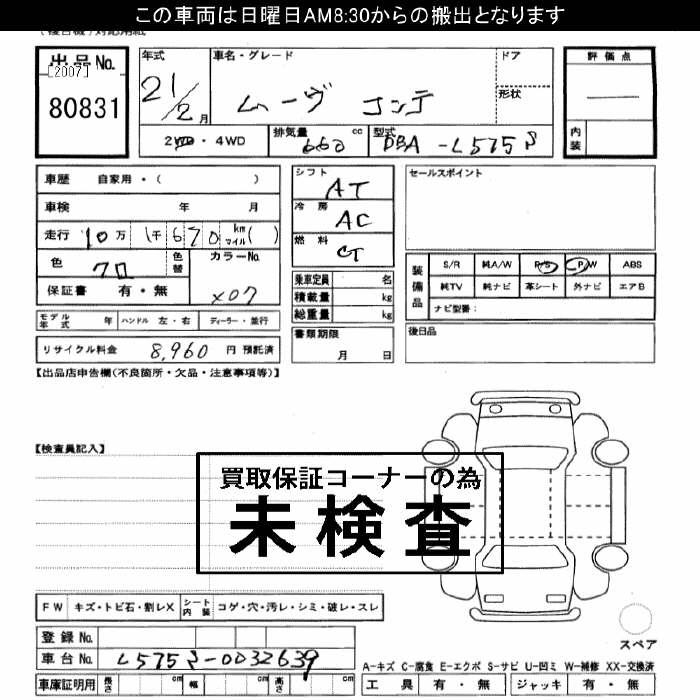 この車両は日曜日AM8:30からの搬出となります
出品No.
[2007]
80831
年式 21/2月
車名・グレード ムーヴ コンテ
ドア
形状
評価点
内装
2WD・4WD
排気量 660 cc
型式 DBA-L575S
車歴 自家用・( )
車検 年 月
走行 10万 1千 670 km マイル( )
色 クロ
色替
カラーNo. X07
保証書 有・無
モデル年式 年 ハンドル 左・右 ディーラー・並行
リサイクル料金 8,960 円 預託済
シフト AT
冷房 AC
燃料
乗車定員 名
積載量 kg
総重量 kg
書類期限
月 日
セールスポイント
装備品
S/R 純A/W P/S P/W ABS
純TV 純ナビ 革シート 外ナビ エアB
ナビ型番:
後日品
【出品店申告欄(不良箇所・欠品・注意事項等)】
【検査員記入】
買取保証コーナーの為
未検査
FW キズ・トビ石・割レX
シート内装 コゲ・穴・汚レ・シミ・破レ・スレ
登録No.
車台No. L575S-0032639
車庫証明用 長さ cm 幅 cm 高さ cm
スペア
A-キズ C-腐食 E-エクボ S-サビ U-凹ミ W-補修 XX-交換済
工具 有・無 ジャッキ 有・無